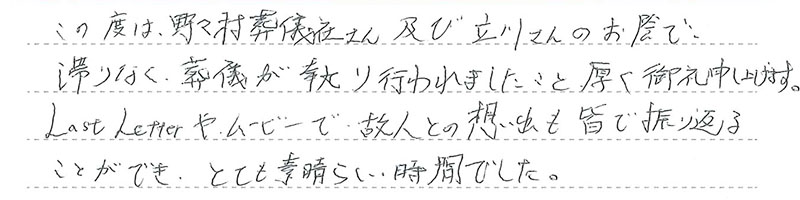 この度は、野々村葬儀社さん及び立川さんのお陰で、
滞りなく、葬儀が執り行われましたこと厚く御礼申し上げます。
Last Letterや、ムービーで、故人との想い出も皆で振り返る
ことができ、とても素晴らしい時間でした。